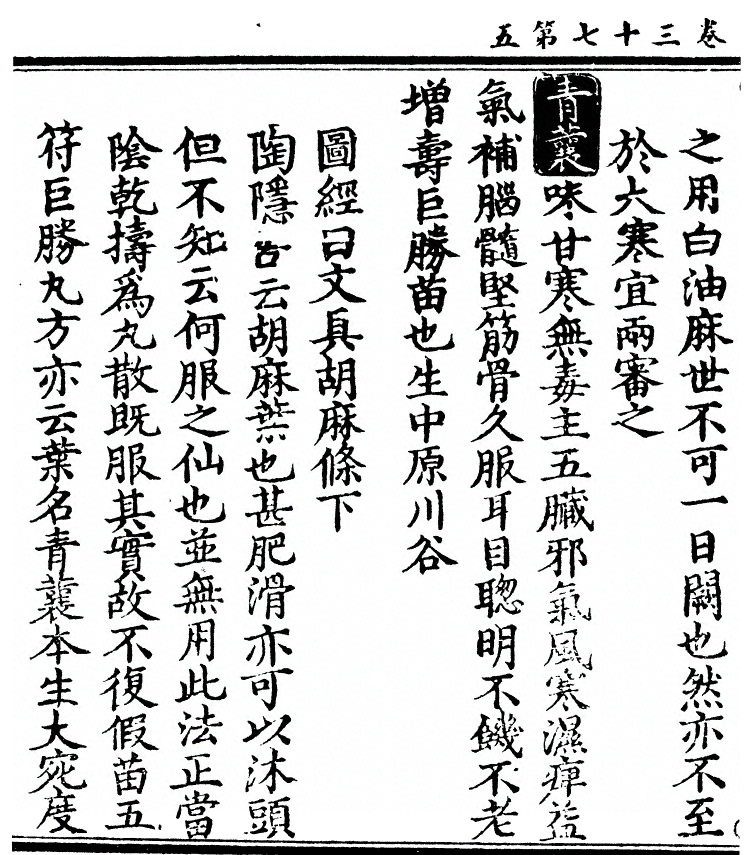 卷三十七第五
之用白油麻世不可一日闕也然亦不至
於大寒宜兩審之
青蘘味甘寒無毒主五臟邪氣風寒濕痺益
氣補腦髓堅筋骨久服耳目聦明不饑不老
增壽巨勝苗也生中原川谷
圖經曰文具胡麻條下
陶隱居云胡麻葉也甚肥滑亦可以沐頭
但不知云何服之仙也並無用此法正當
陰乾擣為丸散既服其實故不復假苗五
符巨勝丸方亦云葉名青蘘本生大宛度